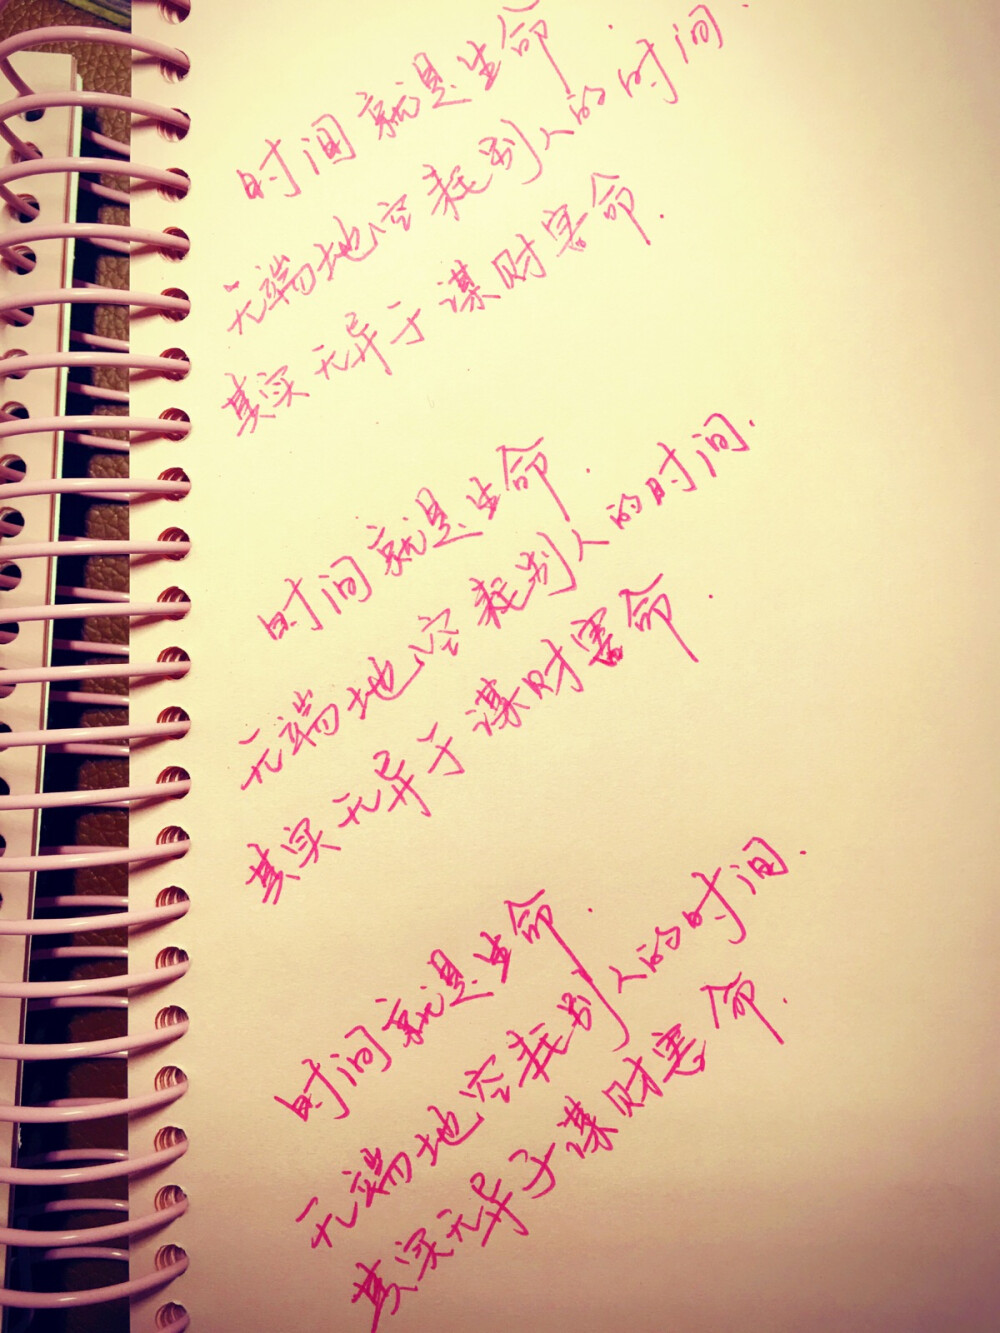 时间就是生命.
无端地空耗别人的时间.
其实无异于谋财害命.
时间就是生命.
无端地空耗别人的时间.
其实无异于谋财害命.
时间就是生命.
无端地空耗别人的时间.
其实无异于谋财害命.